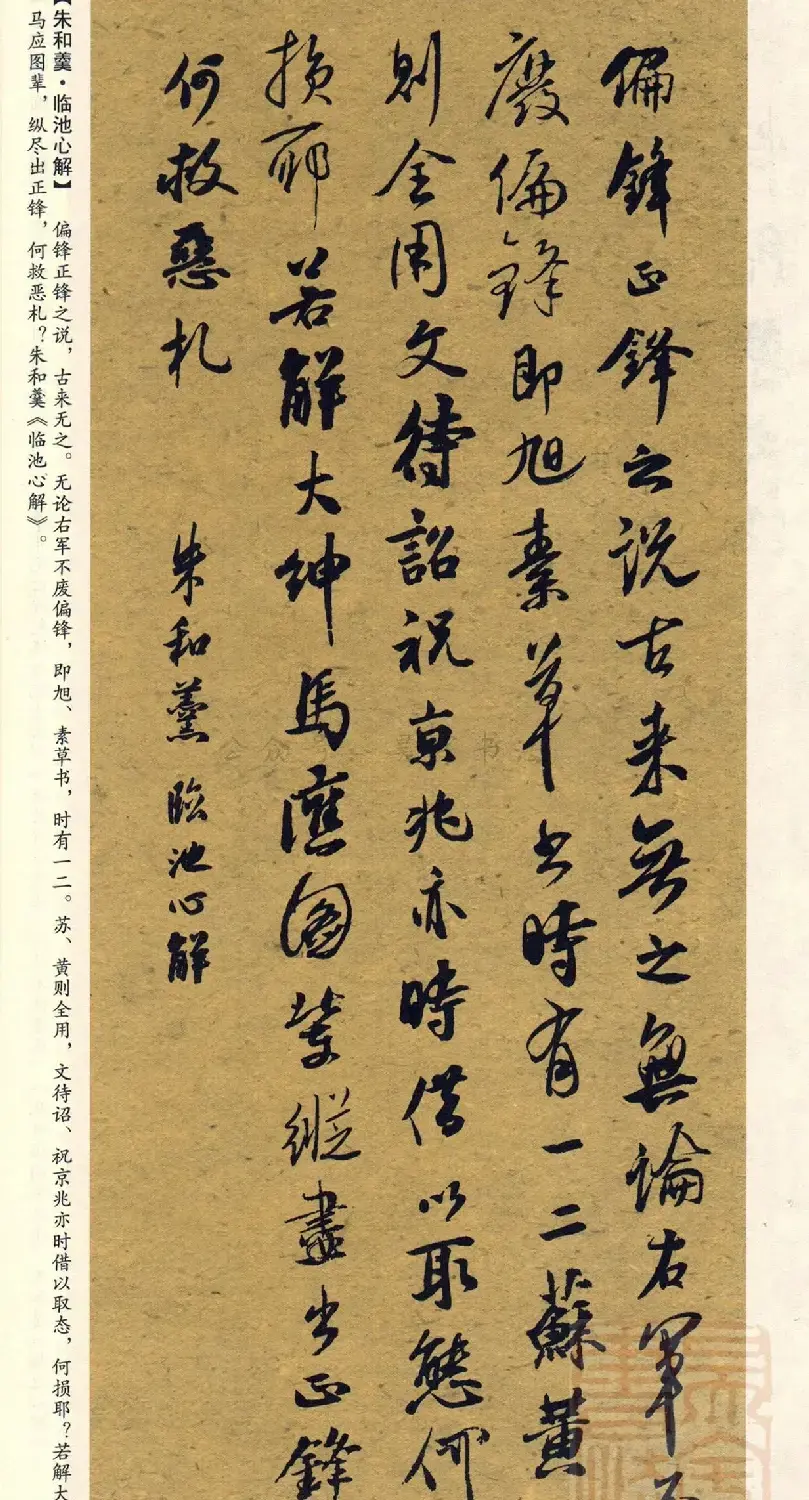 偏鋒正鋒之説古来無之無論右軍不
廢偏鋒即旭素草書時有一二蘇黄
則全用文待詔祝京兆亦時借以取態何
損耶若解大紳馬應圖輩縱盡出正鋒
何救惡札
朱和羹臨池心解
【朱和羹·临池心解】 偏锋正锋之说，古来无之。无论右军不废偏锋，即旭、素草书，时有一二。苏、黄则全用，文待诏、祝京兆亦时借以取态，何损耶？若解大
马应图辈，纵尽出正锋，何救恶札？朱和羹《临池心解》。